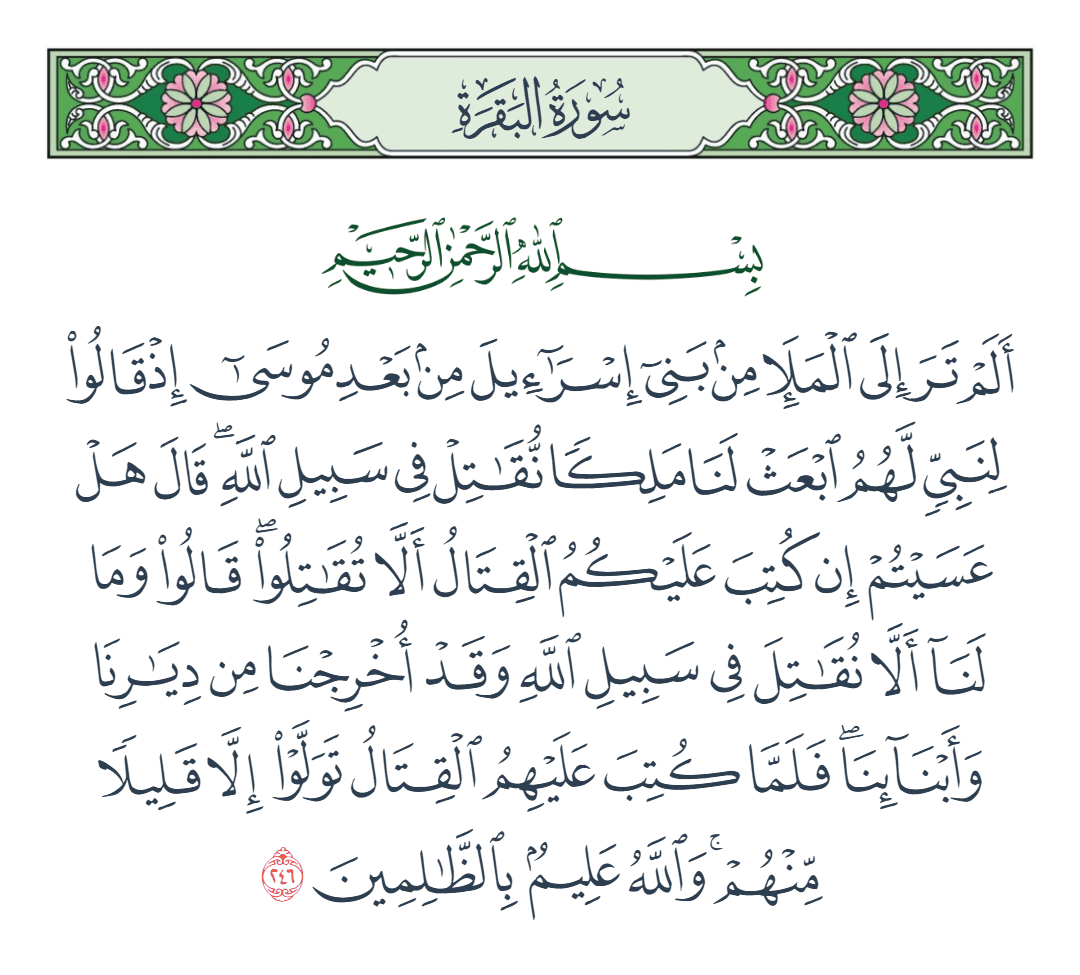 سُورَةُ البَقَرَةِ
بِسْمِ ٱللَّهِ ٱلرَّحْمَٰنِ ٱلرَّحِيمِ
أَلَمْ تَرَ إِلَى ٱلْمَلَإِ مِنۢ بَنِىٓ إِسْرَٰٓءِيلَ مِنۢ بَعْدِ مُوسَىٰٓ إِذْ قَالُوا۟
لِنَبِىٍّ لَّهُمُ ٱبْعَثْ لَنَا مَلِكًا نُّقَٰتِلْ فِى سَبِيلِ ٱللَّهِ ۖ قَالَ هَلْ
عَسَيْتُمْ إِن كُتِبَ عَلَيْكُمُ ٱلْقِتَالُ أَلَّا تُقَٰتِلُوا۟ ۖ قَالُوا۟ وَمَا
لَنَآ أَلَّا نُقَٰتِلَ فِى سَبِيلِ ٱللَّهِ وَقَدْ أُخْرِجْنَا مِن دِيَٰرِنَا
وَأَبْنَآئِنَا ۖ فَلَمَّا كُتِبَ عَلَيْهِمُ ٱلْقِتَالُ تَوَلَّوْا۟ إِلَّا قَلِيلًا
مِّنْهُمْ ۚ وَٱللَّهُ عَلِيمٌۢ بِٱلظَّٰلِمِينَ ٢٤٦